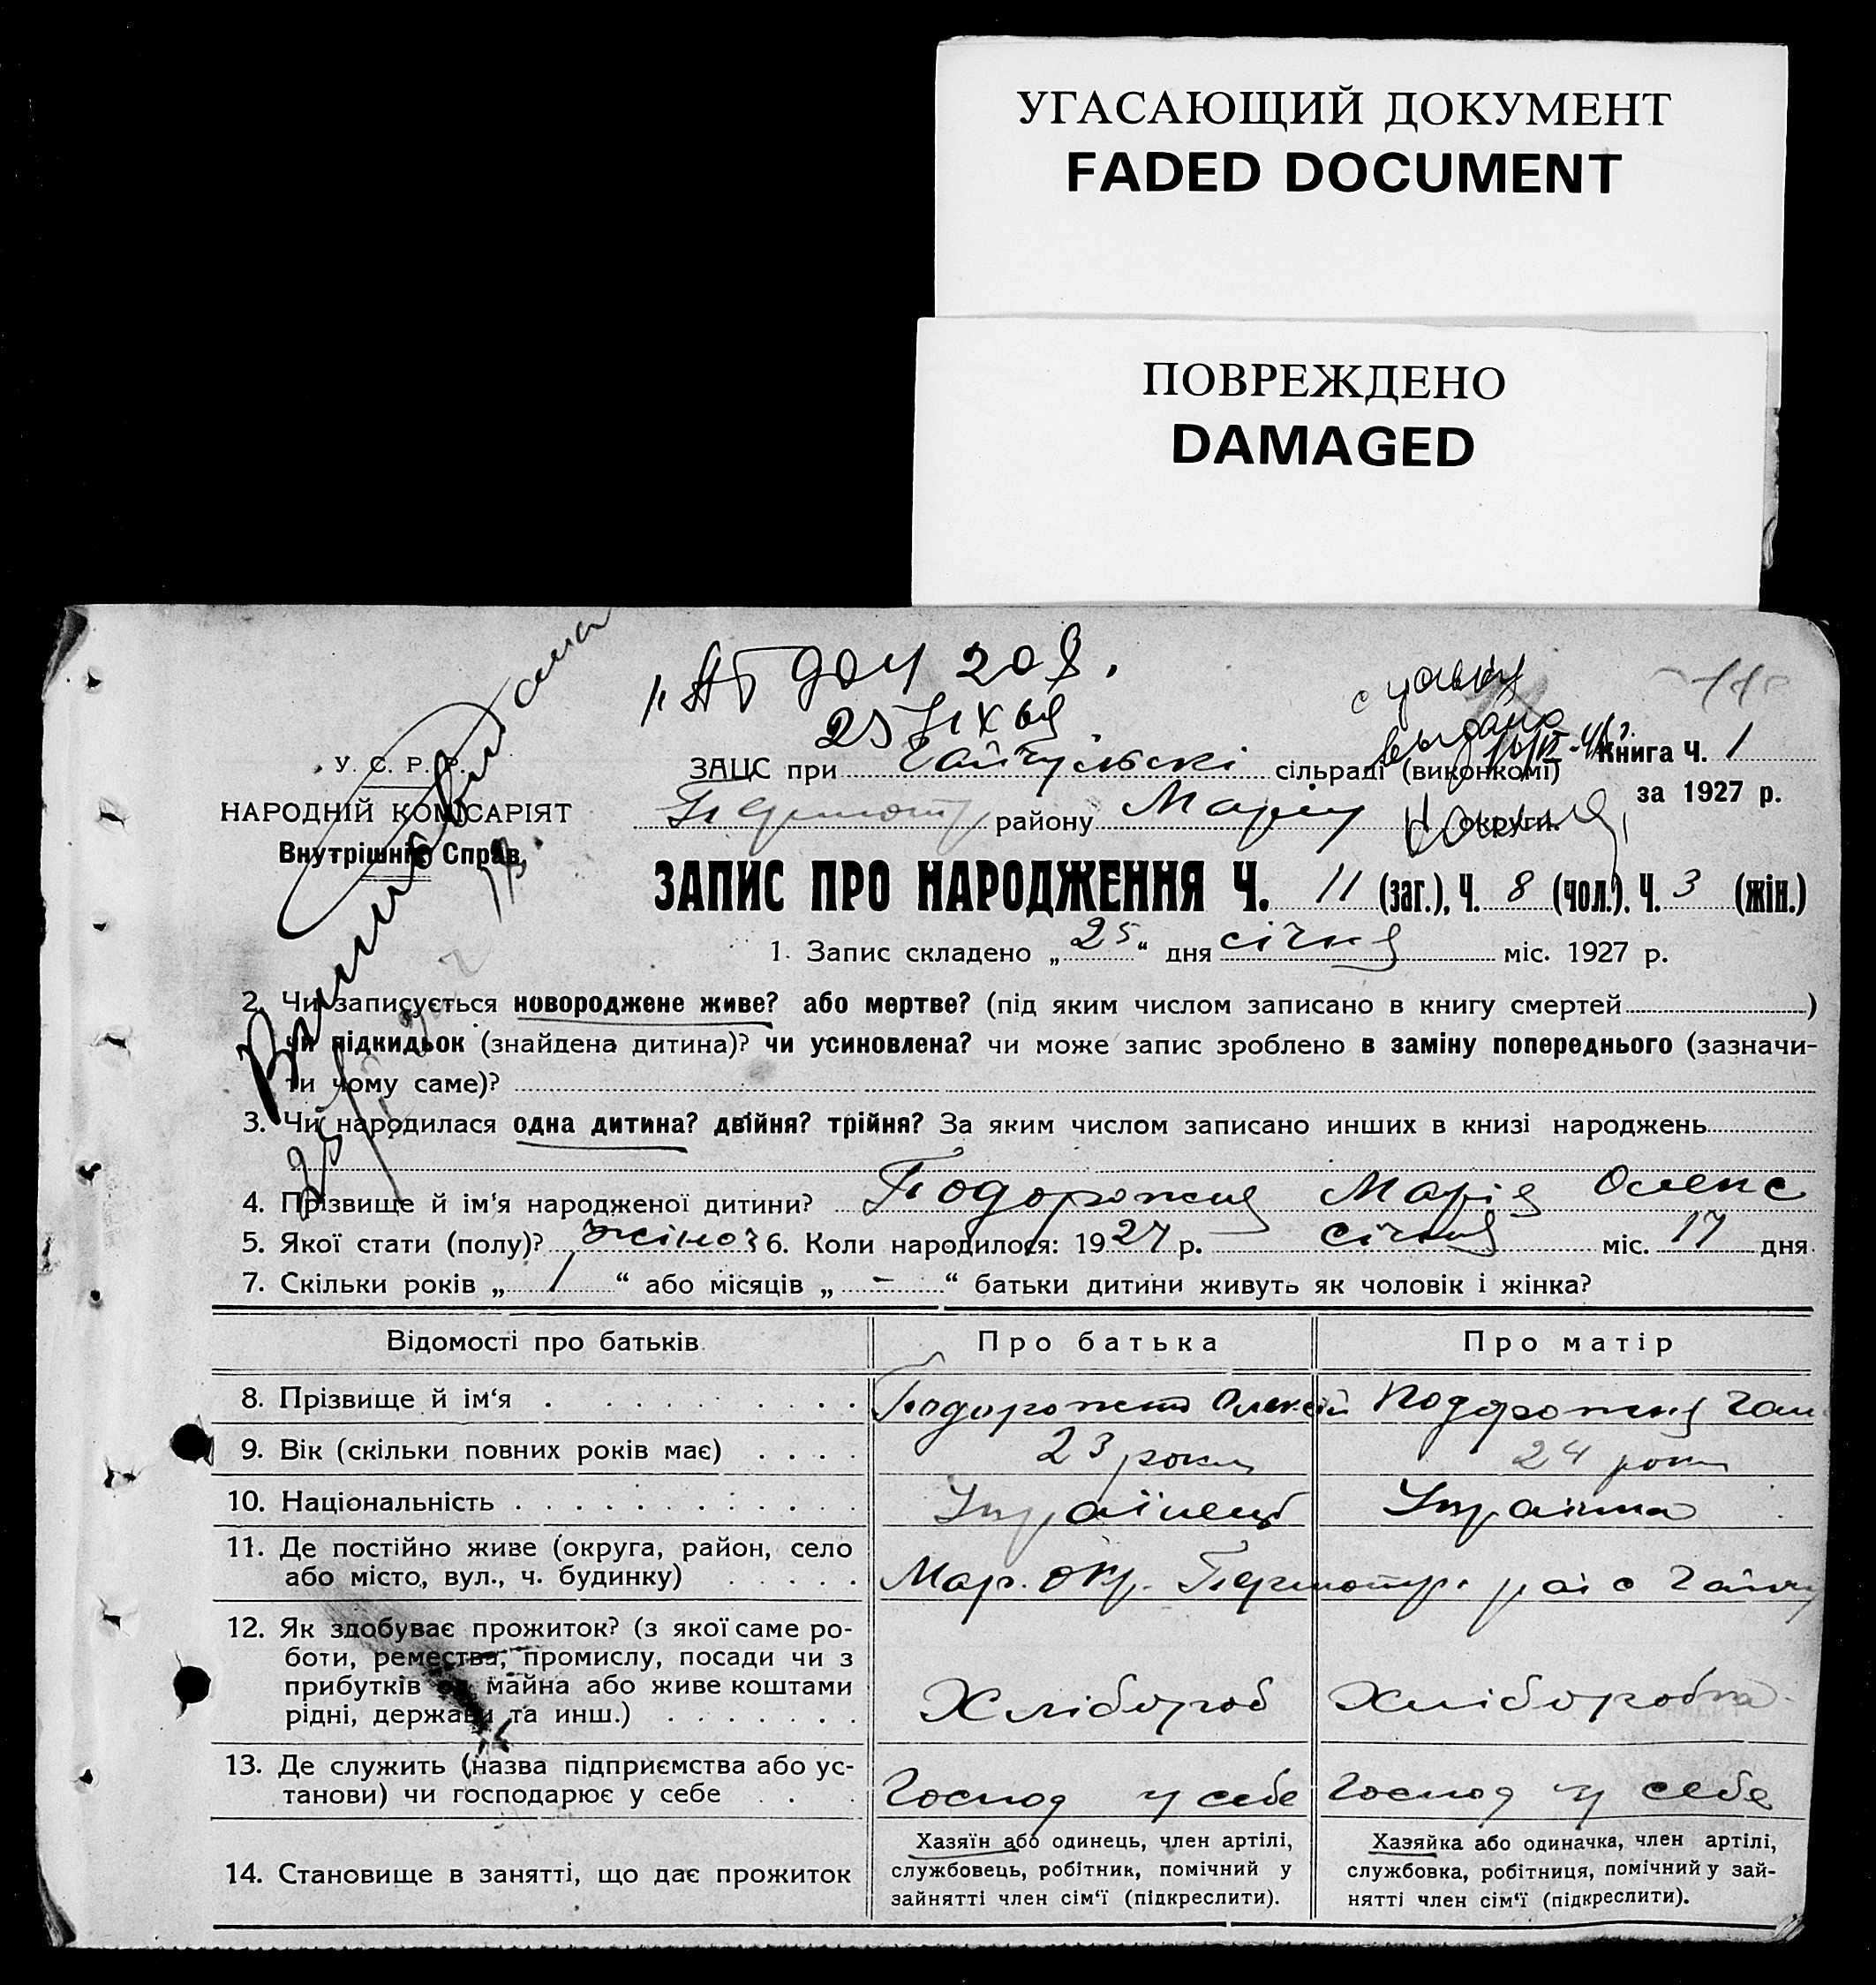 УГАСАЮЩИЙ ДОКУМЕНТ
FADED DOCUMENT
ПОВРЕЖДЕНО
DAMAGED
У. С. Р. Р.
НАРОДНІЙ КОМІСАРІЯТ
Внутрішніх Справ.
ЗАЦС при Гайчульскі сільраді (виконкомі)
Книга Ч. 1
району Маріу округи.
за 1927 р.
ЗАПИС ПРО НАРОДЖЕННЯ Ч. 11 (заг.), Ч. 8 (чол.). Ч. 3 (жін.)
1. Запис складено „ 25 “ дня січня міс. 1927 р.
2. Чи записується новороджене живе? або мертве? (під яким числом записано в книгу смертей )
чи підкидьок (знайдена дитина)? чи усиновлена? чи може запис зроблено в заміну попереднього (зазначи-
ти чому саме)?
3. Чи народилася одна дитина? двійня? трійня? За яким числом записано инших в книзі народжень
4. Прізвище й ім‘я народженої дитини? Подорожня Марія Олекс
5. Якої стати (полу)? жіноч 6. Коли народилося: 1927 р. січня міс. 17 дня
7. Скільки років „ 1 “ або місяців „ - “ батьки дитини живуть як чоловік і жінка?
Відомості про батьків. Про батька Про матір
8. Прізвище й ім‘я Олексій Подорожня Ган
9. Вік (скільки повних років має) 23 роки 24 роки
10. Національність Українець Українка
11. Де постійно живе (округа, район, село
або місто, вул., ч. будинку) Мар. окр. рай с Гайчу
12. Як здобуває прожиток? (з якої саме ро-
боти, ремества, промислу, посади чи з
прибутків од майна або живе коштами
рідні, держави та инш.) Хлібороб Хліборобка
13. Де служить (назва підприємства або ус-
танови) чи господарює у себе Господ у себе Господ у себе
14. Становище в занятті, що дає прожиток
Хазяїн або одинець, член артілі,
службовець, робітник, помічний у
зайнятті член сім‘ї (підкреслити).
Хазяйка або одиначка, член артілі,
службовка, робітниця, помічний у зай-
нятті член сім‘ї (підкреслити).